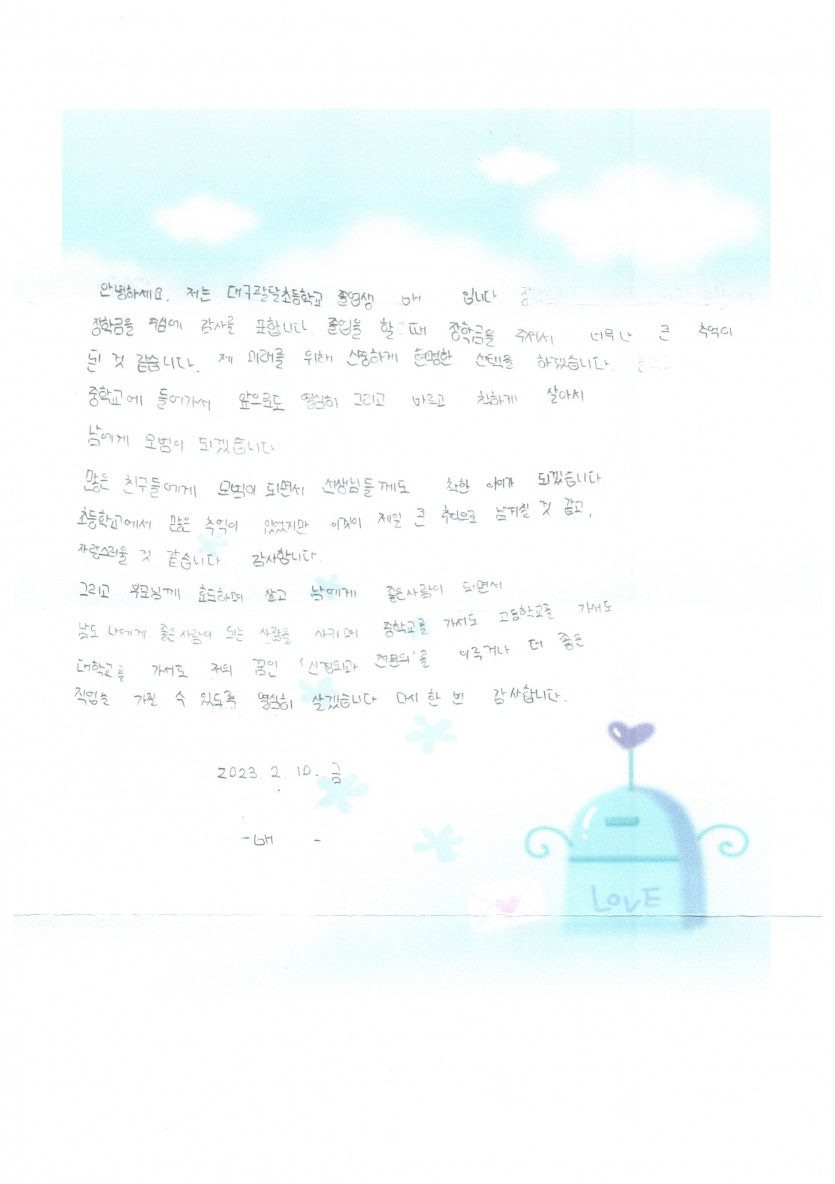 안녕하세요. 저는 대구팔달초등학교 졸업생 배 입니다
장학금을 점에 감사를 표합니다. 졸업을 할 때 장학금을 주셔서 너무나 큰 추억이
된 것 같습니다. 제 미래를 위해 신중하게 현명한 선택을 하겠습니다.
중학교에 들어가서 앞으로도 열심히 그리고 바르고 착하게 살아서
남에게 모범이 되겠습니다.
많은 친구들에게 모범이 되면서 선생님들께도 착한 아이가 되겠습니다
초등학교에서 많은 추억이 있었지만 이것이 제일 큰 추억으로 남겨질 것 같고,
자랑스러울 것 같습니다. 감사합니다.
그리고 부모님께 효도하며 살고 남에게 좋은사람이 되면서
남도 나에게 좋은사람이 되는 사람을 사귀며 중학교를 가서도 고등학교를 가서도
대학교를 가서도 저의 꿈인 '신경외과 전문의'를 이루거나 더 좋은
직업을 가질 수 있도록 열심히 살겠습니다 다시 한 번 감사합니다.
2023. 2. 10. 금
-배 -
LOVE